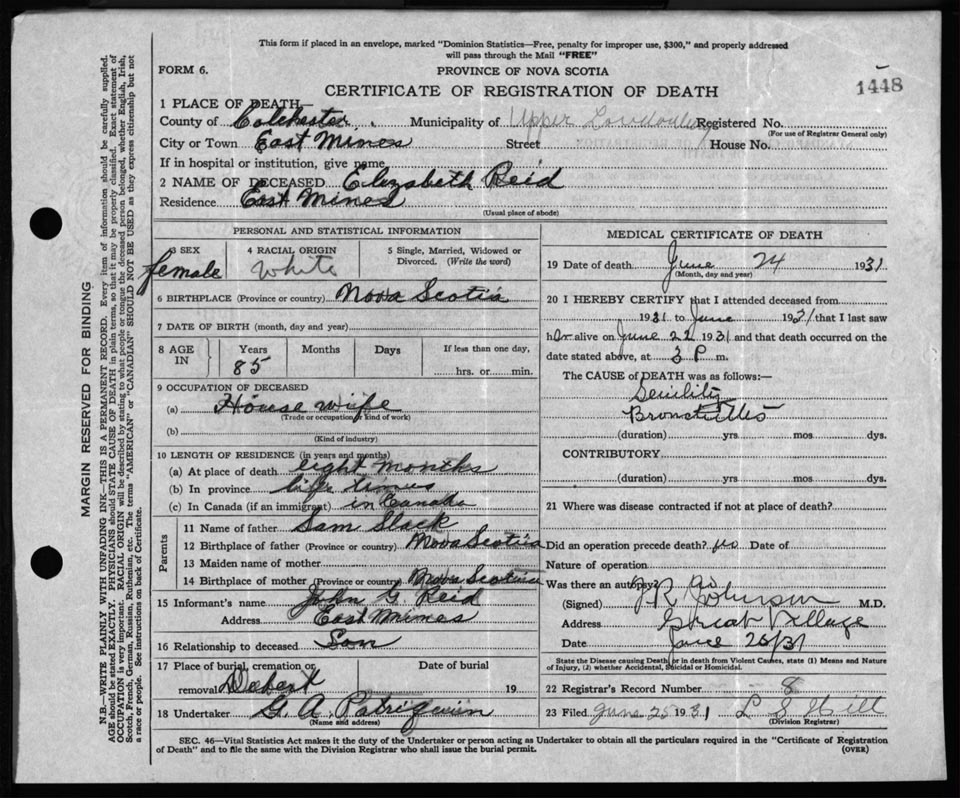 This form if placed in an envelope, marked "Dominion Statistics—Free, penalty for improper use, $300," and properly addressed
will pass through the Mail "FREE"
FORM 6.
PROVINCE OF NOVA SCOTIA
1448
CERTIFICATE OF REGISTRATION OF DEATH
1 PLACE OF DEATH—
County of Colchester Municipality of Upper Registered No.
(For use of Registrar General only)
City or Town East Mines Street House No.
If in hospital or institution, give name
2 NAME OF DECEASED Elizabeth Reid
Residence East Mines
(Usual place of abode)
PERSONAL AND STATISTICAL INFORMATION
3 SEX female
4 RACIAL ORIGIN White
5 Single, Married, Widowed or Divorced. (Write the word)
6 BIRTHPLACE (Province or country) Nova Scotia
7 DATE OF BIRTH (month, day and year)
8 AGE IN Years 85 Months Days If less than one day, hrs. or min.
9 OCCUPATION OF DECEASED
(a) House wife
(Trade or occupation or kind of work)
(b)
(Kind of industry)
10 LENGTH OF RESIDENCE (in years and months)
(a) At place of death eight months
(b) In province life times
(c) In Canada (if an immigrant) in Canada
Parents
11 Name of father Sam Slack
12 Birthplace of father (Province or country) Nova Scotia
13 Maiden name of mother
14 Birthplace of mother (Province or country) Nova Scotia
15 Informant's name John G. Reid
Address East Mines
16 Relationship to deceased Son
17 Place of burial, cremation or removal Debert Date of burial 19
18 Undertaker G. A. Patriquin
(Name and address)
MEDICAL CERTIFICATE OF DEATH
19 Date of death June 24 1931
(Month, day and year)
20 I HEREBY CERTIFY that I attended deceased from
1931 to June 1931 that I last saw
her alive on June 22 1931 and that death occurred on the
date stated above, at 3 P m.
The CAUSE of DEATH was as follows:—
Senility
Bronchitis
(duration) yrs. mos. dys.
CONTRIBUTORY
(duration) yrs. mos. dys.
21 Where was disease contracted if not at place of death?
Did an operation precede death? no Date of
Nature of operation
Was there an autopsy?
(Signed) Johnson M.D.
Address Great Village
Date June 25/31
State the Disease causing Death, or in death from Violent Causes, state (1) Means and Nature
of Injury, (2) whether Accidental, Suicidal or Homicidal.
22 Registrar's Record Number 8
23 Filed June 25 1931 L S Hill
(Division Registrar)
SEC. 46—Vital Statistics Act makes it the duty of the Undertaker or person acting as Undertaker to obtain all the particulars required in the "Certificate of Registration
of Death" and to file the same with the Division Registrar who shall issue the burial permit.
(OVER)
MARGIN RESERVED FOR BINDING
N.B.—WRITE PLAINLY WITH UNFADING INK—THIS IS A PERMANENT RECORD. Every item of information should be carefully supplied.
AGE should be stated EXACTLY. PHYSICIANS should STATE CAUSE OF DEATH in plain terms, so that it may be properly classified. Exact statement of
OCCUPATION is very important. RACIAL ORIGIN will be described by stating to what people or tongue the deceased person belonged, whether English, Irish,
Scotch, French, German, Russian, Ruthenian, etc. The terms "AMERICAN" or "CANADIAN" SHOULD NOT BE USED as they express citizenship but not
a race or people. See instructions on back of Certificate.